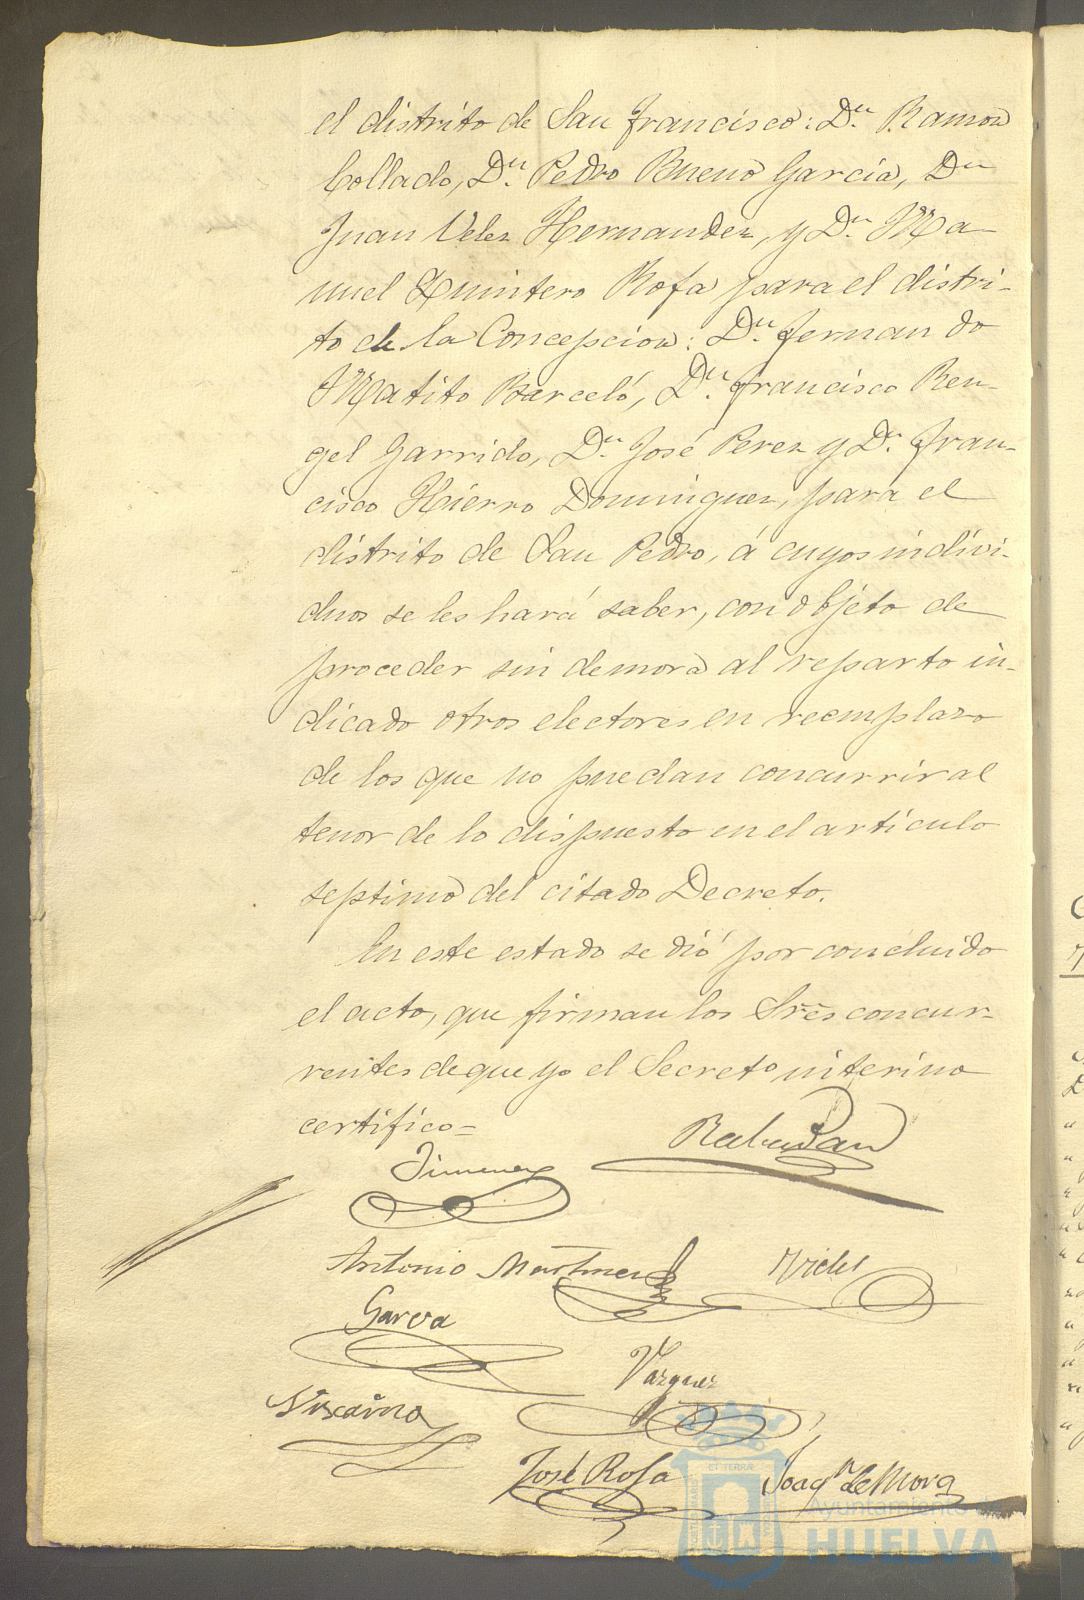 el distrito de San Francisco: Dn. Ramon
Collado, Dn. Pedro Bueno García, Dn
Juan Velez Hernandez, y Dn. Ma-
nuel Quintero Rofa para el distri-
to de la Concepcion: Dn. Fernando
Matito Barceló, Dn. Francisco Ren-
gel Garrido, Dn. José Perez y Dn. Fran-
cisco Hierro Dominguez, para el
distrito de San Pedro, á cuyos indivi-
duos se les hará saber, con objeto de
proceder sin demora al reparto in-
dicado otros electores en reemplazo
de los que no puedan concurrir al
tenor de lo dispuesto en el artículo
septimo del citado Decreto.
En este estado se dió por concluido
el acto, que firman los Sres concur-
rentes de que yo el Secreto interino
certifico=
Rabadan
Jimenez
Antonio Martinez
Garcia
Vazquez
Viscaino
José Rofa
Joaqn. de Mora
ET TERRÆ
Ayuntamiento de
HUELVA